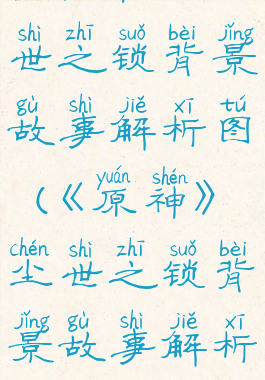 shì zhī suǒ bèi jǐng
世之锁背景
gù shì jiě xī tú
故事解析图
yuán shén
(《原神》
chén shì zhī suǒ bèi
尘世之锁背
jǐng gù shì jiě xī
景故事解析